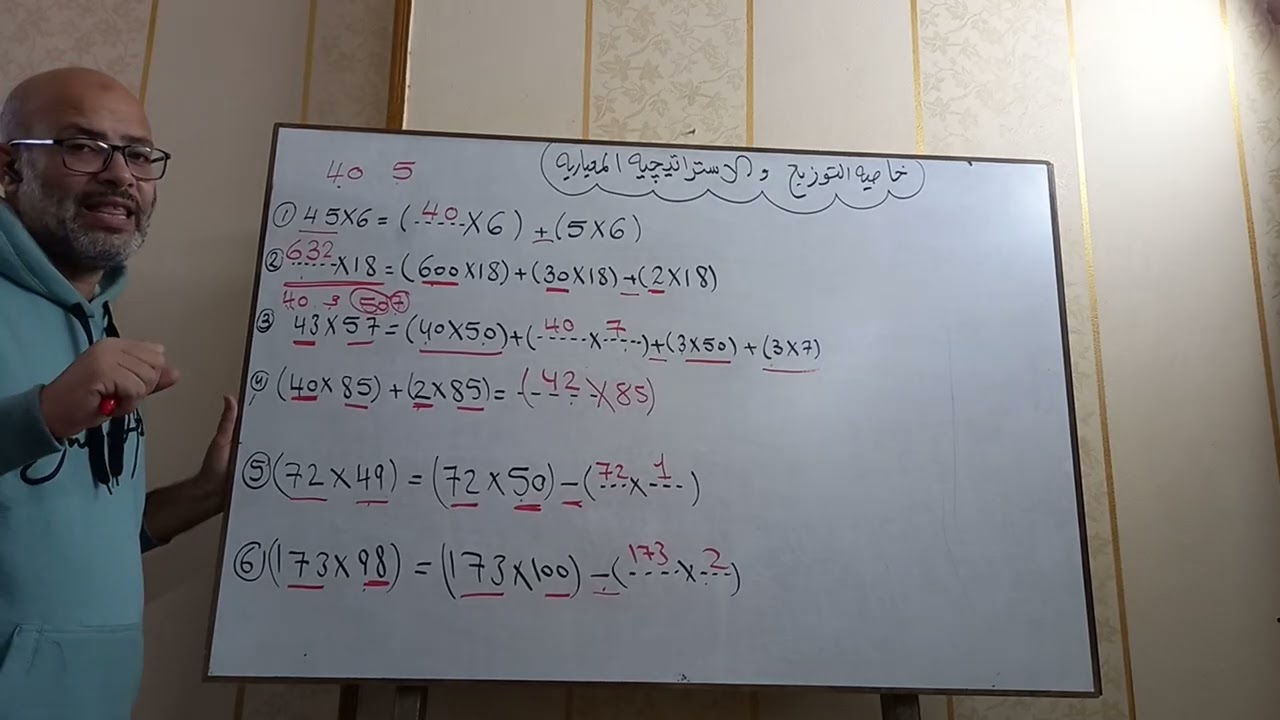 خاصيه التوزيع والاستراتيجيه المعياريه
40 5
① 45×6 = (40×6) + (5×6)
② 632×18 = (600×18)+(30×18)+(2×18)
40 و 3 50 7
③ 43×57 = (40×50)+(40×7)+(3×50)+(3×7)
④ (40×85)+(2×85) = (42×85)
⑤ (72×49) = (72×50)-(72×1)
⑥ (173×98) = (173×100)-(173×2)